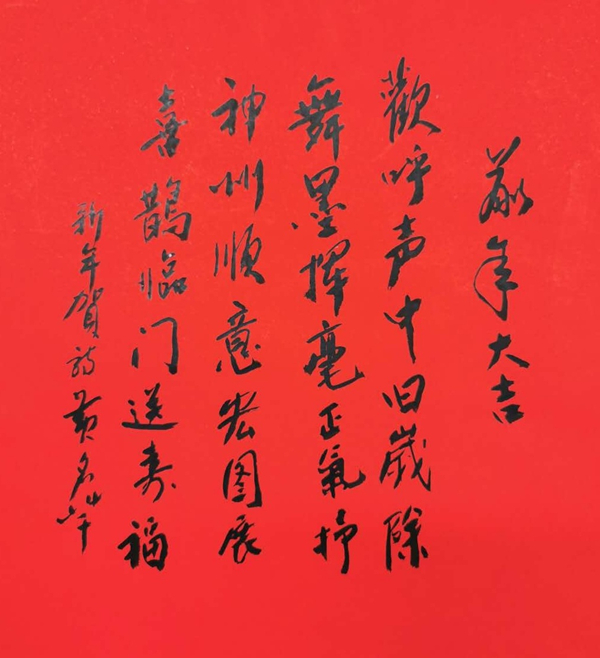 年大吉
歡呼声中旧歲除
舞墨揮毫正氣抒
神州順意宏图展
喜鵲臨门送寿福
新年賀詩 黄名